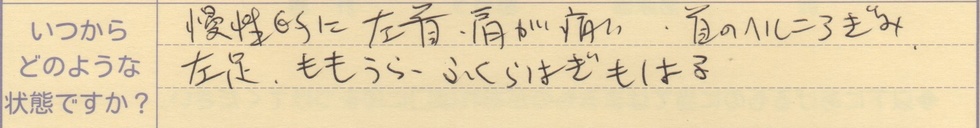 いつから
どのような
状態ですか?
慢性的に左首・肩が痛い・首のヘルニアぎみ
左足、ももうら、ふくらはぎもはる